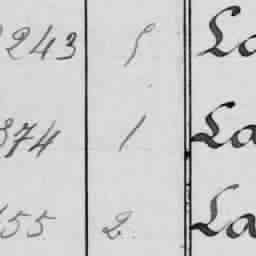 243 1 La
374 1 La
55 2 La